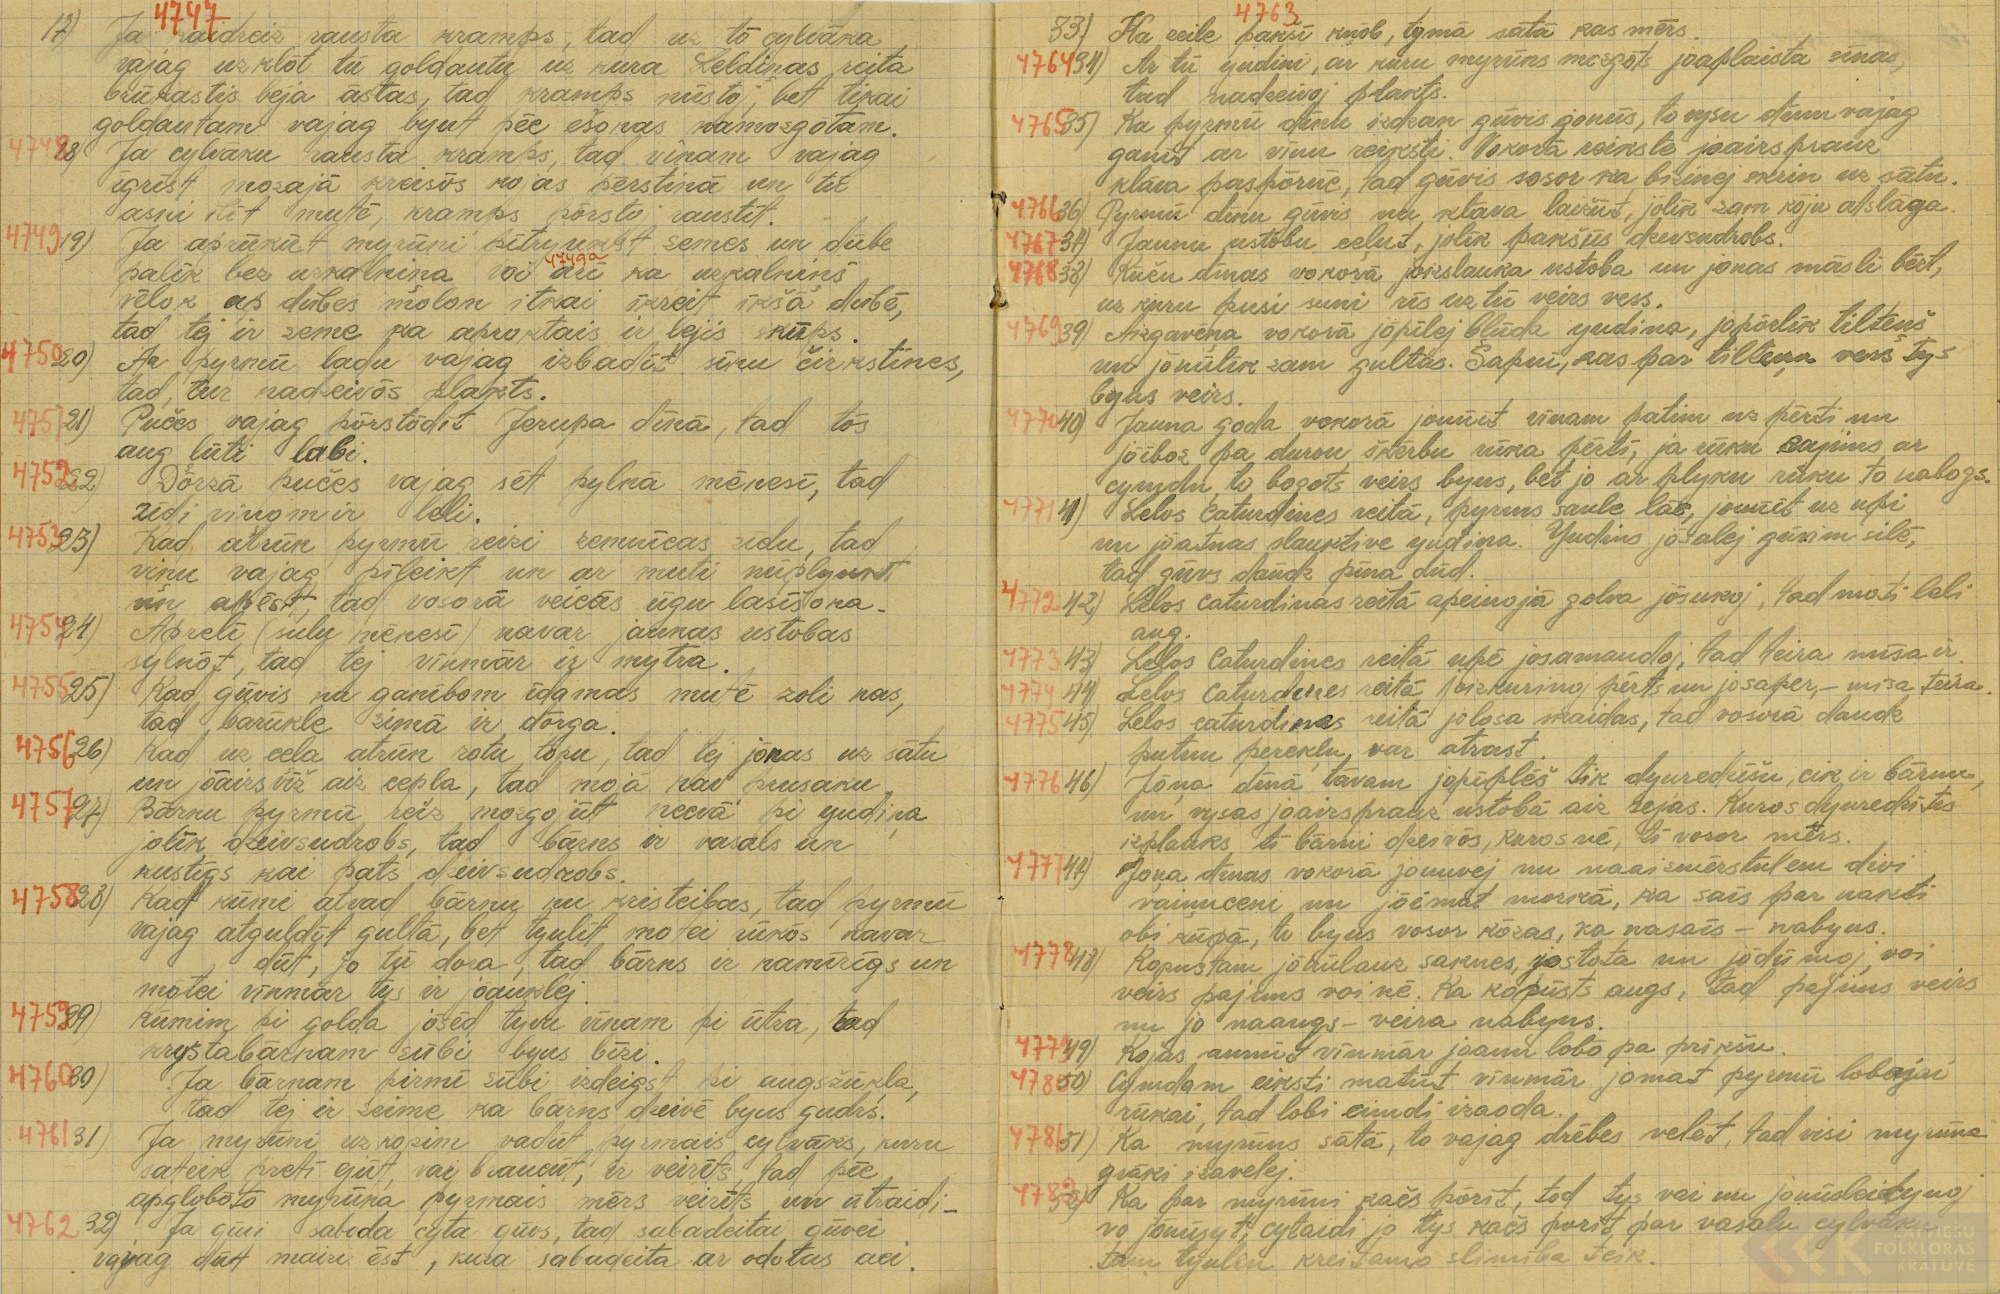 4747
17) Ja kaidreiz rausta kramps, tad uz tō cylvāka
vajag uzklōt tū goldautu uz kura Leldiņas reita
brūkastis beja āstas, tad kramps nūstoj, bet tikai
goldautam vajag byut pēc ēšonas namozgōtam.
4748 18) Ja cylvāku rausta kramps, tad vinam vajag
īgrīst mozajā kreisōs kojas pērstinā un tū
asni līt mutē, kramps pōrstoj raustīt.
4749 19) Ja aprūkūt myrūni pītryukst zemes un dūbe
palīk bez uzkalnina voi arī ka uzkalniņš
4749a
vēlok ap dūbes molom itkai īkreit īkšā dūbē,
tad tej ir zeme ka aproktais ir bejis skūps.
4750 20) Ar pyrmū ladu vajag izbadīt sūku čirkstines,
tad tur nadzeivōs plakts.
4751 21) Pučes vajag pōrstōdīt Jerupa dīnā, tad tōs
aug lūti labi.
4752 22) Dōrzā pučes vajag sēt pylnā mēnesī, tad
zīdi vinom ir leli.
4753 23) Kad atrūn pyrmū reizi zemūicas zīdu, tad
vinu vajag pīleikt un ar muti nūplyukt
un apēst, tad vosorā veicās ūgu lasīšona.
4754 24) Aprelī (sulu mēnesī) navar jaunas ustobas
sylnōt, tad tej vīnmār iz mytra.
4755 25) Kad gūvis nu ganībom īdamas mutē zoli nas,
tad barūkle zimā ir dōrga.
4756 26) Kad uz cela atrūn rotu topu, tad tej jōnas uz sātu
un jōaizsviž aiz cepla, tad mojā nav prusaku
4757 27) Bārnu pyrmū reiz mozgojūt necvā pi yudiņa
jolīk dzeivsudrobs, tad bārns ir vasals un
kustīgs kai pats dzeivsudrobs.
4758 28) Kad kūmi atvad bārnu nu kristeibas, tad pyrmū
vajag atguldīt gultā, bet tyulīt motei rūkōs navar
dūt, jo tū dora, tad bārns ir namīrīgs un
motei vīnmār tys ir jōauklej.
4759 29) Kūmim pi golda jōsēd tyvu vīnam pi ūtra, tad
krystabārnam zūbi byus bīzi.
4760 30) Ja bārnam pirmī zūbi izdeigst pi augszūkla,
tad tej ir zeime ka bārns dzeivē byus gudrs.
4761 31) Ja myrūni uz kopim vadūt pyrmais cylvāks, kuru
sateik pretī ejūt, vai braucūt, ir veirīts, tad pēc
apglobōtō myrūna pyrmais mērs veirīts un ūtraidi.
4762 32) Ja gūvi sabada cyta gūvs, tad sabadeitai gūvei
vajag dūt maizi ēst, kura sabadeita ar odotas aci.
4763
33) Ka zeile pakšī knōb, tymā sātā kas mērs.
4764 34) Ar tū yudini, ar kūru myrūns mozgōts jōaplaista sīnas,
tad nadzeivoj plakts.
4765 35) Ka pyrmū dīnu izdzan gūvis gonūs, to vysu dīnu vajag
ganīt ar vīnu reiksti. Vokorā reikste jōaizsprauž
klāva paspōrnē, tad gūvis vosor ka bizinej skrin uz sātu.
4766 36) Pyrmū dīnu gūvis nu klāva laižūt, jolīk zam koju atslāga.
4767 37) Jaunu ustobu celut, jolīk pakšūs dzeivsudrobs.
4768 38) Kuču dīnas vokorā jōizslauka ustoba un jonas māsli bērt,
uz kuru pusi suni rīs uz tū veirs vess.
4769 39) Aizgavēņa vokorā jōpīlej blūda yudina, jopōrlīk tilteņš
un jōnūlīk zam gultas. Šapnī, kas par tilteņu vess tys
byus veirs.
4770 40) Jauna goda vokorā jonūit vīnam patim uz pērti un
jōibōz pa durou škērbu rūka pērtī, ja rūku sajims ar
cymdu, to bogots veirs byus, bet jo ar plyku rūku to nabogs.
4771 41) Lelos Caturdines reitā, pyrms saule lāc, jonūit uz upi
un jōatnas slauktive yudina. Yudins jōsalej gūvim silē,
tad gūvs daudz pīna dūd.
4772 42) Lelos Caturdinas reitā apeinojā golva jōsukoj, tad moti leli
aug.
4773 43) Lelos Caturdines reitā upē josamaudoj, tad teira mīsa ir.
4774 44) Lelos Caturdines reitā jōizkurinoj pērts un jōsaper, – mīsa teira.
4775 45) Lelos caturdinas reitā jolosa skaidas, tad vosorā daudz
putnu pereklu var atrast.
4776 46) Jōņa dīnā tavam jopīplēš tik dyuredzīšu, cik ir bārnu,
un vysas jōaizsprauž ustobā aiz sejas. Kuros dyuredzītes
izplauks, tī bārni dzeivōs, kuros nē, tī vosor mērs.
4777 47) Jōņa dīnas vokorā jonuvej nu naaizmērstulem divi
vainuceni un jōimat morkā, ka sais par nakti
obi kūpā, to byus vosor kōzas, ka nasaīs – nabyus.
4778 48) Kopustam jōnūlauz saknes, jōstota un jōdūmoj, voi
veirs pajims voi nē. Ka kopūsts augs, tad pajims veirs
nu jo naaugs – veira nabyus.
4779 49) Kojas aunūt vīnmār jōaun lobō pa prīkšu.
4780 50) Cymdam eiksti matūt vīnmār jamat pyrmū lobajai
rūkai, tad lobi cimdi izaoda.
4781 51) Ka myrūns sātā, to vajag drēbes velēt, tad visi myrūna
grāki izavelej.
4782 52) Ka par myrūni kačs pōrīt, tod tys vai nu jōnūdeidynoj
vo jōnūsyt, cytaidi jo tys kačs pōrīt par vasalu cylvāku,
tam tyuleņ kreitamo slimība teik.
LATVIEŠU
FOLKLORAS
KRĀTUVE